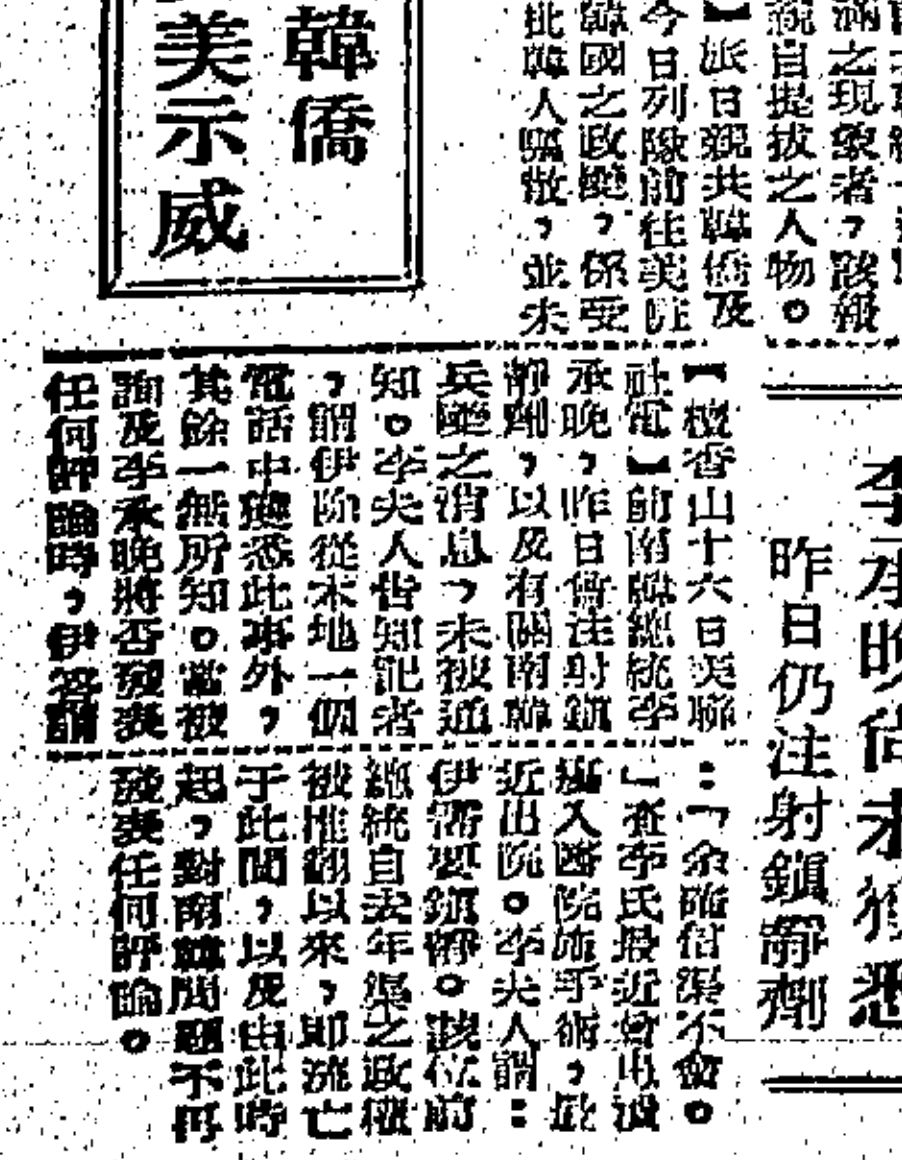 滿之現象者，該報
統自提拔之人物。
】派日親共韓僑及
今日列隊前往美駐
韓國之政變，係受
批韓人驅散，並未
韓僑
美示威
李承晚尚未獲悉
昨日仍注射鎮靜劑
【檀香山十六日美聯
社電】前南韓總統李
承晚，昨日曾注射鎮
靜劑，以及有關南韓
兵變之消息，未被通
知。李夫人告知記者
，謂伊除從本地一個
電話中獲悉此事外，
其餘一無所知。當被
詢及李承晚將否發表
任何評論時，伊答謂
：「余確信渠不會。
」查李氏最近曾由
入醫院施手術，最
近出院。李夫人謂：
伊需要鎮靜。該位前
總統自去年渠之政權
被推翻以來，即流亡
于此間，以及由此時
起，對南韓問題不再
發表任何評論。